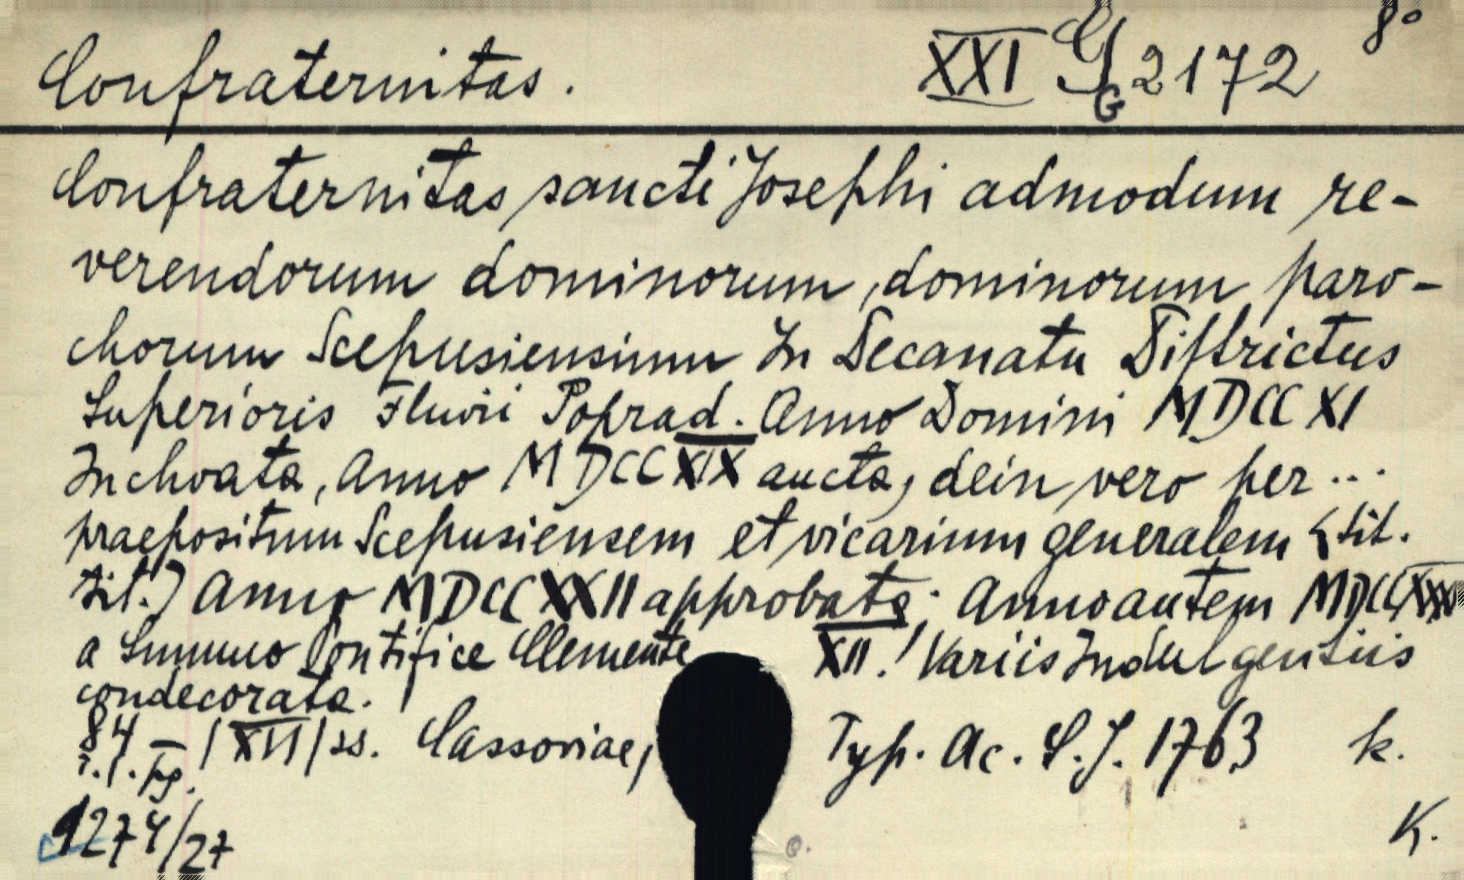 Confraternitas. XXI G 2172 8°
G
Confraternitas sancti Josephi admodum re-
verendorum dominorum, dominorum paro-
chorum Scepusiensium In Decanatu Diſtrictus
Superioris Fluvii Poprad. Anno Domini MDCCXI
Inchoata, Anno MDCCXIX aucta, dein vero per ...
praepositum Scepusiensem et vicarium generalem (tit.
tit.) Anno MDCCXXII approbata; Anno autem
a Summo Pontifice Clemente XII.! Variis Indulgentiis
condecorata.
84 — /XII/ ss. Cassoviae, Typ. Ac. S.J. 1763 k.
i.l. pg.
1274/27 K.